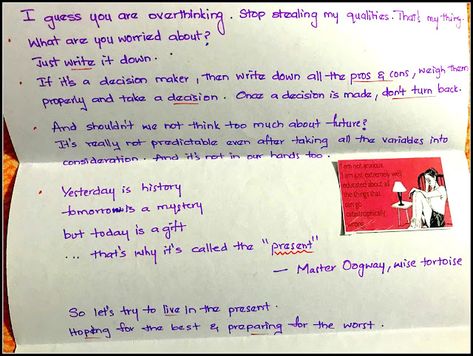 I guess you are overthinking. Stop stealing my qualities. That's my thing.
What are you worried about?
Just write it down.
If it's a decision maker, then write down all the pros & cons, weigh them
properly and take a decision. Once a decision is made, don't turn back.
And shouldn't we not think too much about future?
It's really not predictable even after taking all the variables into
consideration. And it's not in our hands too.
I am not anxious.
I am just extremely well
educated about all
the things that
can go
catastrophically
wrong.
Yesterday is history
tomorrow is a mystery
but today is a gift
... that's why it's called the "present"
— Master Oogway, wise tortoise
So let's try to live in the present.
Hoping for the best & preparing for the worst.